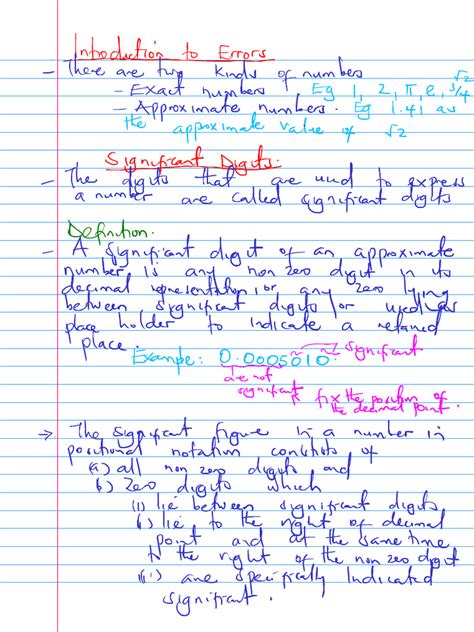 Introduction to Errors
- There are two kinds of numbers √2
- Exact numbers Eg 1, 2, π, e, 3/4
- Approximate numbers. Eg 1.41 as
the approximate value of √2
Significant Digits.
- The digits that are used to express
a number are called significant digits
Definition.
- A significant digit of an approximate
number is any non zero digit in its
decimal representation, or any zero lying
between significant digits or used as
place holder to indicate a retained
place.
Example: 0.0005010 significant
are not
significant fix the position of
the decimal point.
→ The significant figure in a number in
positional notation consists of
(a) all non zero digits and
b) zero digits which
(i) lie between significant digits
(ii) lie to the right of decimal
point and at the same time
to the right of the non zero digit
(iii) are specifically indicated
significant.